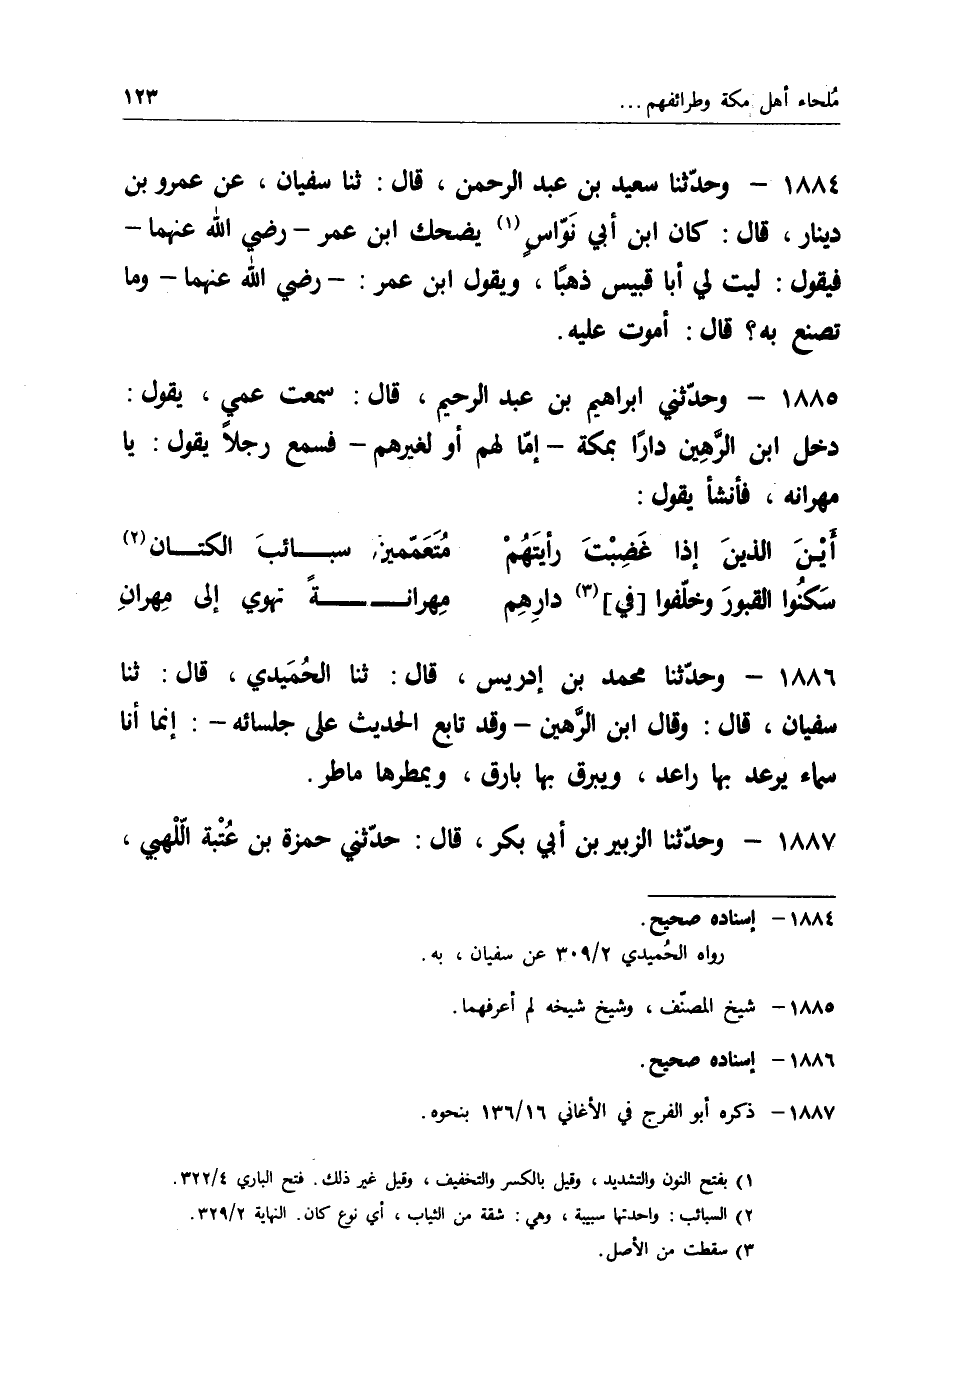 مُلحاء أهل مكة وطرائفهم ... ١٢٣
١٨٨٤ – وحدّثنا سعيد بن عبد الرحمن ، قال : ثنا سفيان ، عن عمرو بن
دينار ، قال : كان ابن أبي نَوّاسٍ (١) يضحك ابن عمر – رضي الله عنهما –
فيقول : ليت لي أبا قبيس ذهبًا ، ويقول ابن عمر : – رضي الله عنهما – وما
تصنع به؟ قال : أموت عليه.
١٨٨٥ – وحدّثني ابراهيم بن عبد الرحيم ، قال : سمعت عمي ، يقول :
دخل ابن الرَّهِين دارًا بمكة – إمّا لهم أو لغيرهم – فسمع رجلاً يقول : يا
مهرانه ، فأنشأ يقول :
أَيْنَ الذينَ إذا غَضِبْتَ رأيتَهُمْ مُتَعَمّمين سبــائبَ الكتــان (٢)
سَكَنُوا القبورَ وخلّفوا [في] (٣) دارِهِم مِهرانــــــةً تهوي إلى مِهرانِ
١٨٨٦ – وحدّثنا محمد بن إدريس ، قال : ثنا الحُمَيدي ، قال : ثنا
سفيان ، قال : وقال ابن الرَّهين – وقد تابع الحديث على جلسائه – : إنما أنا
سماء يرعد بها راعد ، ويبرق بها بارق ، ويمطرها ماطر.
١٨٨٧ – وحدّثنا الزبير بن أبي بكر ، قال : حدّثني حمزة بن عُتْبة اللّهْبي ،
١٨٨٤ – إسناده صحيح.
رواه الحُميدي ٣٠٩/٢ عن سفيان ، به.
١٨٨٥ – شيخ المصنّف ، وشيخ شيخه لم أعرفهما.
١٨٨٦ – إسناده صحيح.
١٨٨٧ – ذكره أبو الفرج في الأغاني ١٣٦/١٦ بنحوه.
١) بفتح النون والتشديد ، وقيل بالكسر والتخفيف ، وقيل غير ذلك. فتح الباري ٣٢٢/٤.
٢) السبائب : واحدتها سبيبة ، وهي : شقة من الثياب ، أي نوع كان. النهاية ٣٢٩/٢.
٣) سقطت من الأصل.